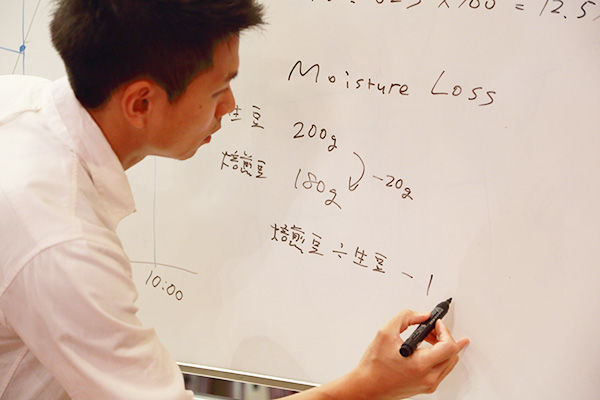 .125 × 100 = 12.5%
Moisture Loss
生豆 200g
焙煎豆 180g -20g
焙煎豆 ÷ 生豆 - 1
10:00